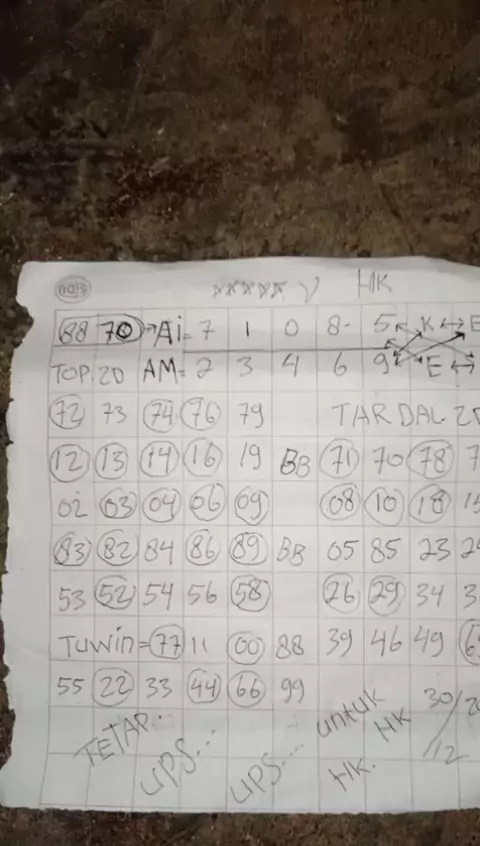 HK
88 70 → Ai = 7 1 0 8 - 5 K ↔ E
TOP. 20 AM = 2 3 4 6 9 E ↔
72 73 74 76 79 TARDAL 20
12 13 14 16 19 BB 71 70 78 7
02 03 04 06 09 08 10 18 15
83 82 84 86 89 BB 05 85 23 24
53 52 54 56 58 26 29 34 3
TUWIN = 77 11 00 88 39 46 49 6
55 22 33 44 66 99 30/20
TETAP.. UPS... UPS... UNTUK HK HK. /12